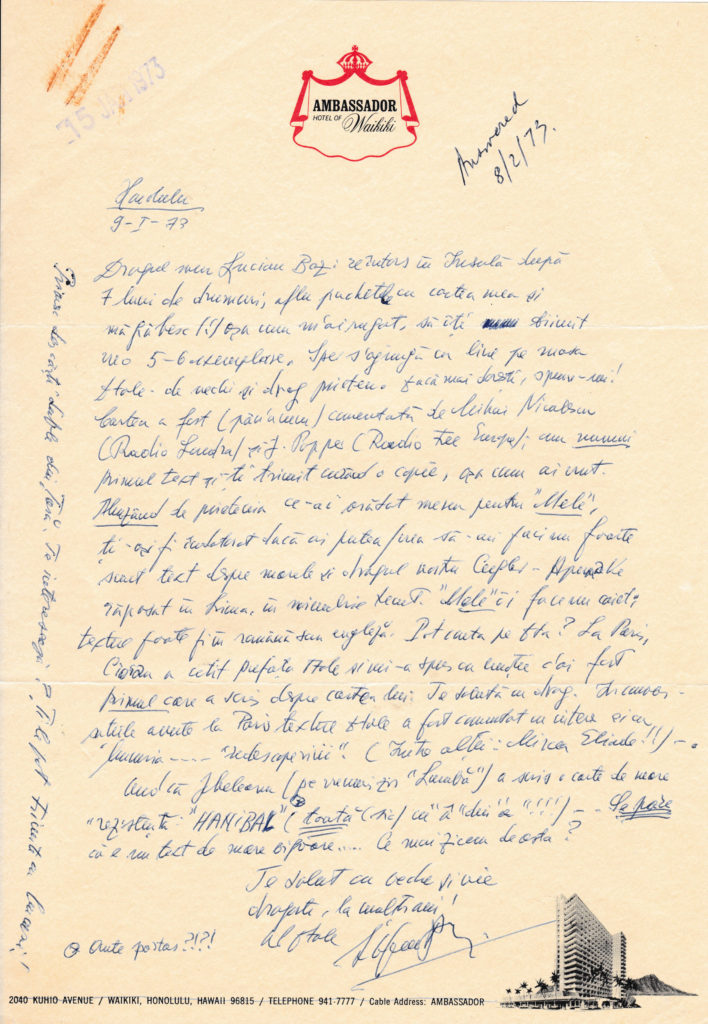 15 JAN 1973
AMBASSADOR
HOTEL OF Waikiki
Answered
8/2/73.
Honolulu
9-I-73
Dragul meu Lucian Boz: reîntors în Insulă după
7 luni de drumuri, aflu pachetele cu cartea mea și
mă grăbesc (!) așa cum m'ai rugat, să-ți trimit
vreo 5-6 exemplare. Sper s'ajungă cu bine pe masa
tale de vechi și drag prieten. Dacă mai dorești, spune-mi!
Cartea a fost comentată de Mihai Niculescu
(Radio Londra) și J. Popper (Radio Free Europe); am numai
primul text și-ți trimit curând o copie, așa cum ai vrut.
Abuzând de prietenia ce-ai arătat mereu pentru "Mele",
ti-aș fi îndatorat dacă ai putea/vrea să-mi faci un foarte
scurt text despre marele și dragul nostru
răposat în Lima, în noiembrie trecut. "Mele" îi face un caiet;
textele foarte fi în română sau engleză. Pot conta pe tine? La Paris,
Cioran a citit prefața tale și mi-a spus cu emoție c'ai fost
primul care a scris despre cartea lui. Te salută cu drag. In
avute la Paris textele tale a fost comentat cu interes și cu
"bucuria ---- "redescoperirii". (Intre alții: Mircea Eliade!!) -.
Aud că Jebeleanu (pe vremuri zis "Lumbă") a scris o carte de mare
"rezistență": "HANIBAL" (toată (sic) cu "â" "din" a "!!!) -. Se pare
că e un text de mare vigoare.... Ce mai zicem de asta?
Te salut cu veche și vie
dragoste, la mulți ani!
al tale
⊙ Ante portas?!?!
Primesc des cărți dela din Țară. Te interesează? Ți le pot trimite cu bucurie!
2040 KUHIO AVENUE / WAIKIKI, HONOLULU, HAWAII 96815 / TELEPHONE 941-7777 / Cable Address: AMBASSADOR